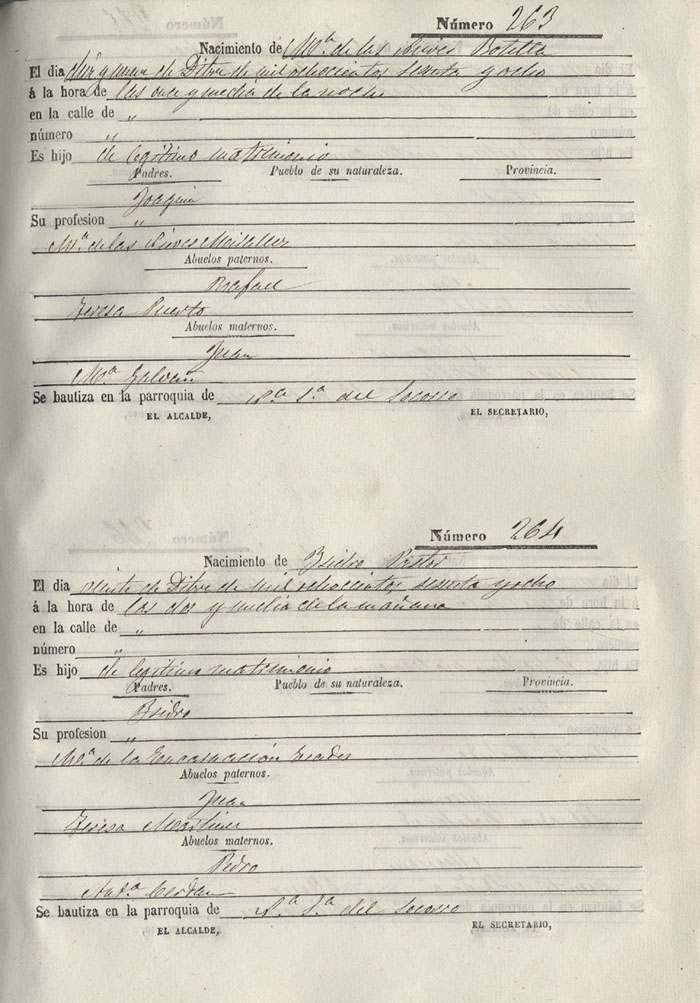 Número 263
Nacimiento de Mª de las Nieves Botella
El dia diez y nueve de Dbre de mil ochocientos sesenta y ocho
á la hora de las once y media de la noche
en la calle de "
número "
Es hijo de legítimo matrimonio
Padres. Pueblo de su naturaleza. Provincia.
Joaquin
Su profesion "
Mª de las Nieves
Abuelos paternos.
Rafael
Teresa Puerto
Abuelos maternos.
Juan
Mª Galvañ
Se bautiza en la parroquia de Nª Sª del Socorro
EL ALCALDE, EL SECRETARIO,
Número 264
Nacimiento de Isidro
El dia veinte de Dbre de mil ochocientos sesenta y ocho
á la hora de las dos y media de la mañana
en la calle de "
número "
Es hijo de legítimo matrimonio
Padres. Pueblo de su naturaleza. Provincia.
Isidro
Su profesion "
Mª de la Encarnación
Abuelos paternos.
Juan
Teresa Martinez
Abuelos maternos.
Pedro
Antª
Se bautiza en la parroquia de Nª Sª del Socorro
EL ALCALDE, EL SECRETARIO,